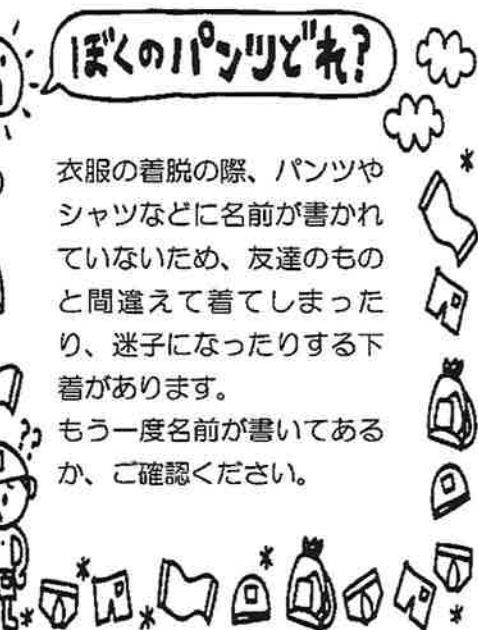 ぼくのパンツどれ?
衣服の着脱の際、パンツや
シャツなどに名前が書かれ
ていないため、友達のもの
と間違えて着てしまった
り、迷子になったりする下
着があります。
もう一度名前が書いてある
か、ご確認ください。
??